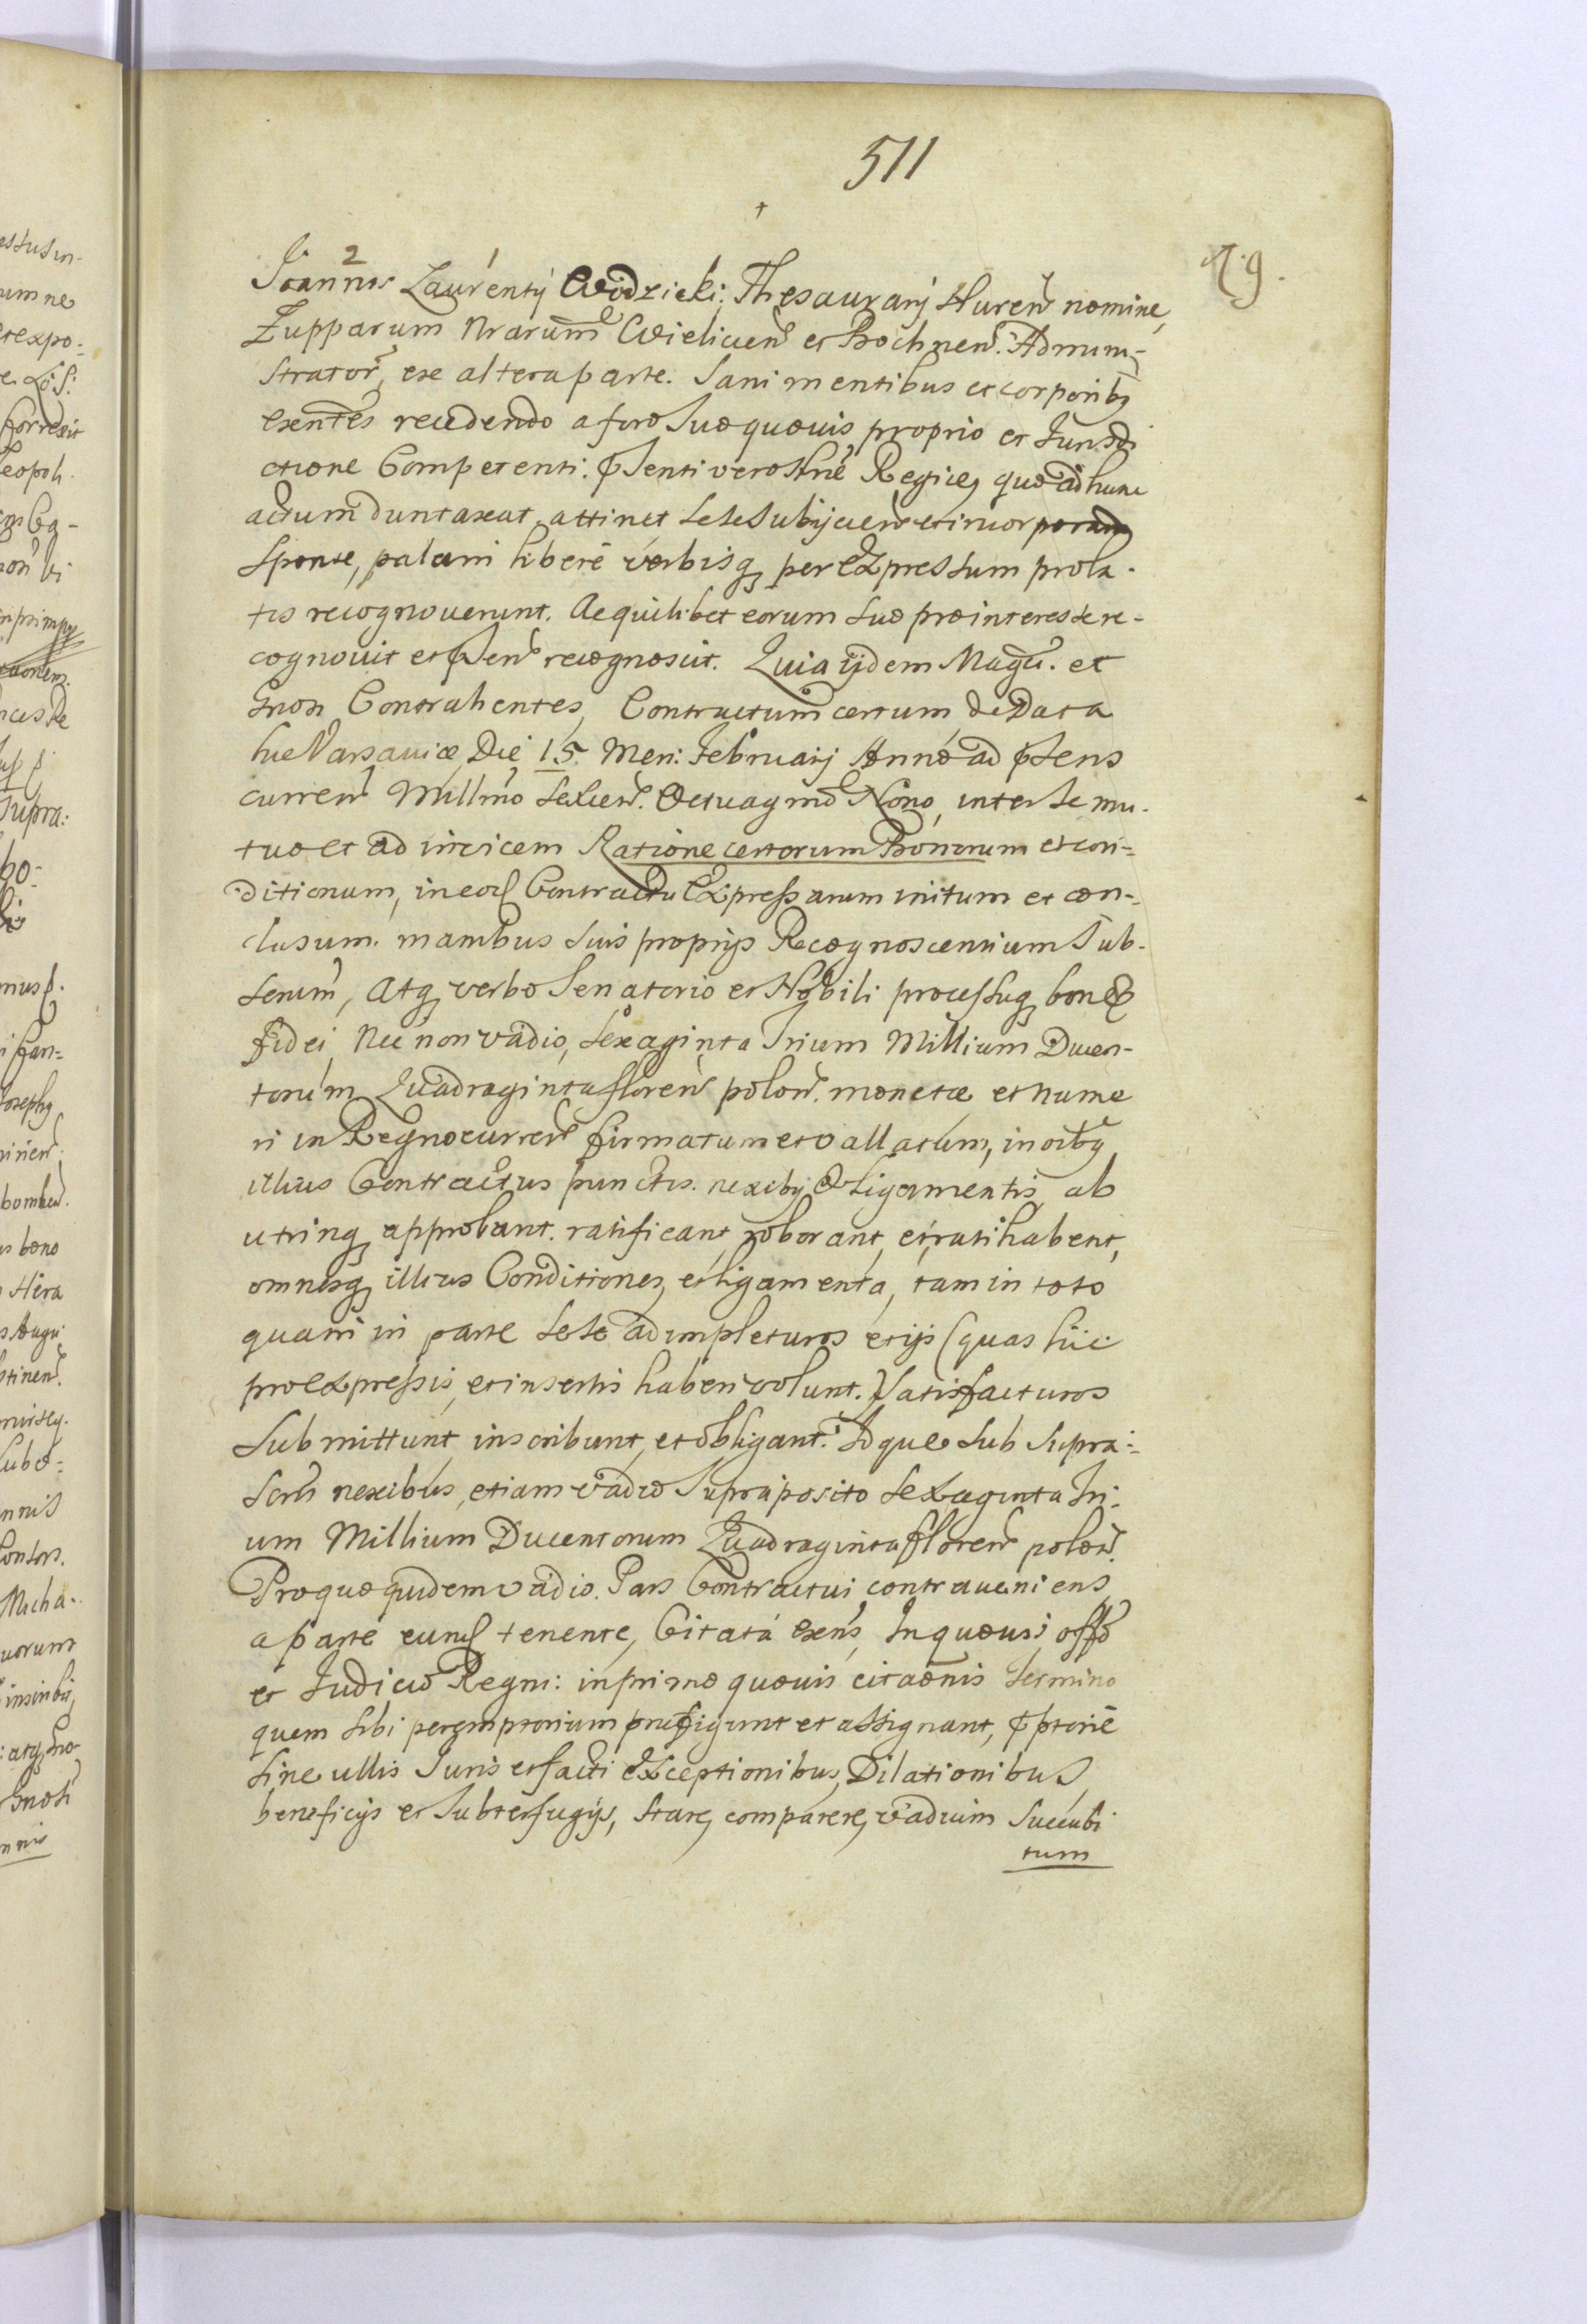 511
N: 9.
Joannis Laurentij Wodzicki, Thesaurarij Huren nomine,
Zupparum Nrarum Wielicen et Bochnen. Admini-
strator, exe altera parte. Sani mentibus et corporibq
exentes recedendo a foro suo quovis proprio et Jurisdi
ctione Competenti. pSenti vero Regice, quo ad hunc
actum duntaxat attinet sese subijcien et incorporan
sponte, palam liberé verbisq per expressum prola-
tis recognoverunt. Ac quilibet eorum suo pro interesse re-
cognovit et pSen recognoscit. Quia ijdem Magci. et
Gnosi Contrahentes, Contractum certum de Data
hic Varsaviæ Die 15. Men: February Anno ad pSens
curren Millmo Sexcen. Octuagmo Nono, inter se mu-
tuo et ad invicem Ratione certorum Bonorum et con-
ditionum, in eod Contractu Expressarum initum et con-
clusum. manibus suis proprijs Recognoscentium Sub-
scrium, atq verbo Senatorio et Nobili processuq bonæ
fidei, Nec non vadio, sexaginta Trium Millium Ducen-
torum Quadraginta floren polon. monetæ et nume
ri in Regno curren firmatum et vallatum, in oibq
illius Contractus punctis. nexibq et Ligamentis ab
utrinq approbant. ratificant, roborant, et ratihabent,
omnesq illius Conditiones, et ligamenta, tam in toto
quam in parte sese adimpleturos et ijs (quas hic
pro expressis, et insertis haberi volunt.) satisfacturos
submittunt, inscribunt, et obligant. Idque sub supra-
scris nexibus, etiam vadio supraposito sexaginta Tri-
um Millium Ducentorum Quadraginta floren polon.
Pro quo quidem vadio. Pars Contractui contraveniens
a parte eund tenente, Citata exens, In quovis offo
et Judicio Regni: in primo quovis citaonis termino
quem sibi peremptorium præfigunt et assignant, pptorié
sine ullis Juris et facti exceptionibus, Dilationibus
beneficijs et subterfugijs, stare, comparere, vadium succubi
tum